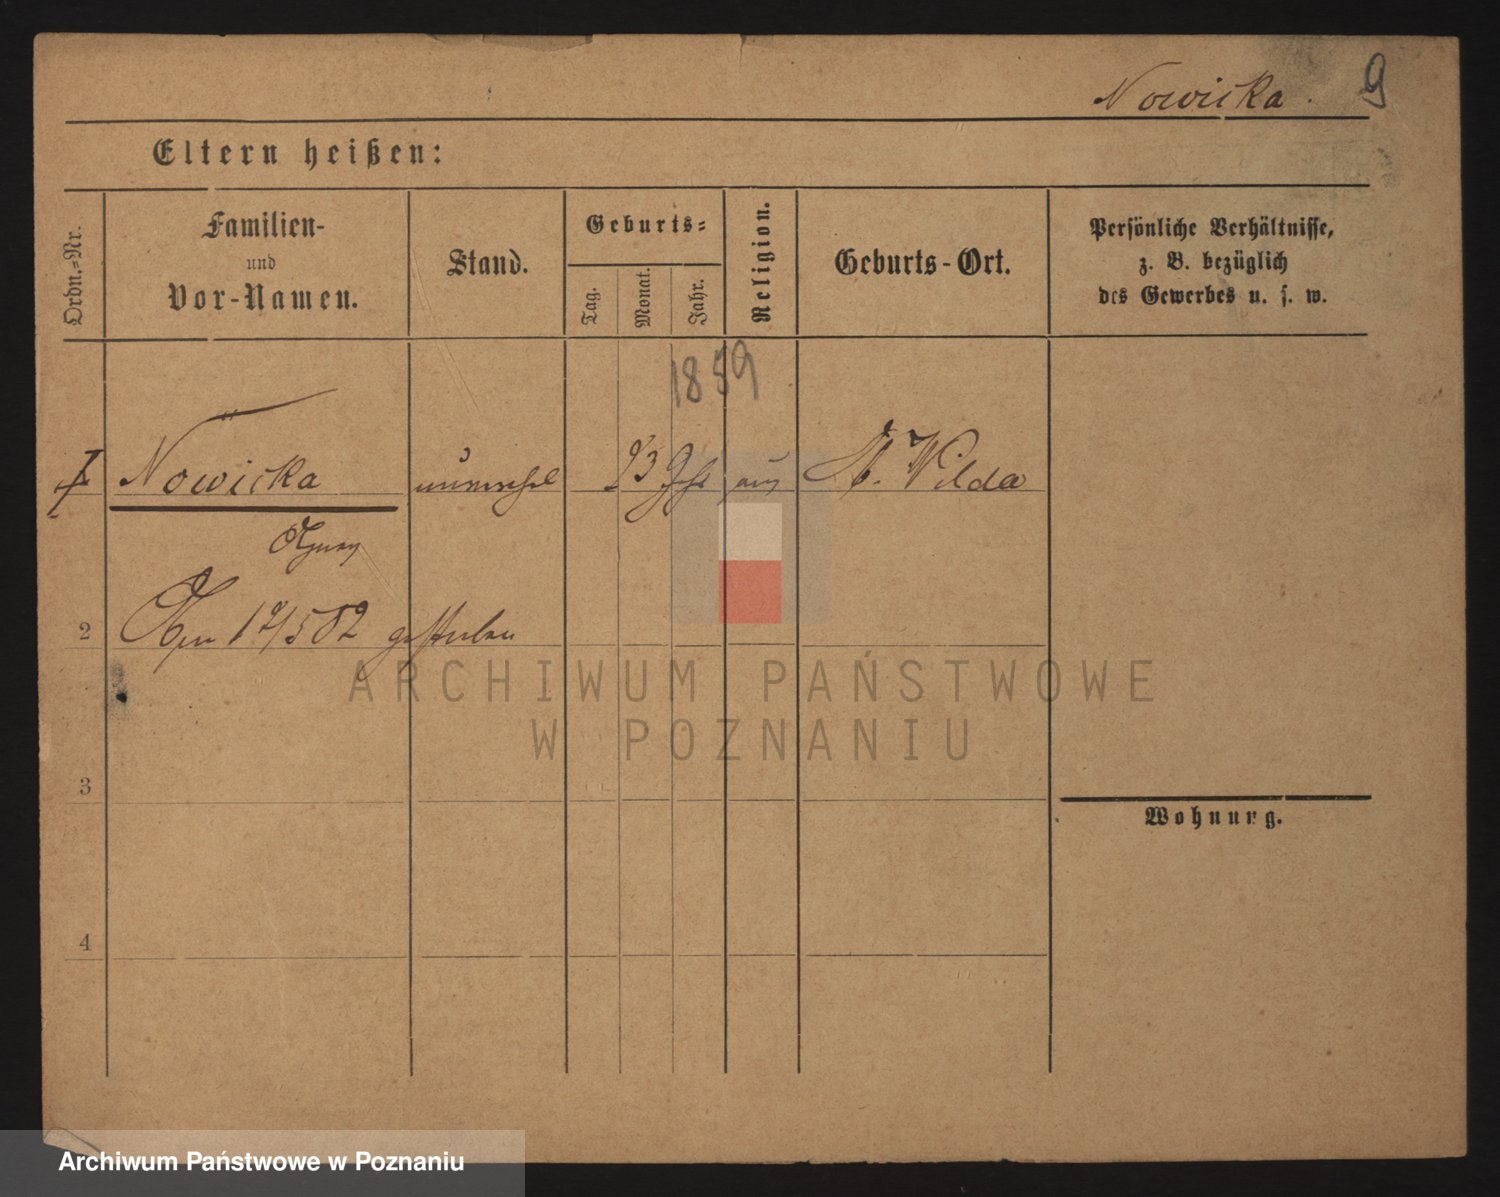 Nowicka. 9
Eltern heißen:
Ordn.-Nr.
Familien-
und
Vor-Namen.
Stand.
Geburts-
Tag.
Monat.
Jahr.
Religion.
Geburts-Ort.
Persönliche Verhältnisse,
z. B. bezüglich
des Gewerbes u. s. w.
1859
Nowicka unverehel 23 Jahr aus Wilda
2 1882 gestorben
3
Wohnung.
4
ARCHIWUM PAŃSTWOWE
W POZNANIU
Archiwum Państwowe w Poznaniu